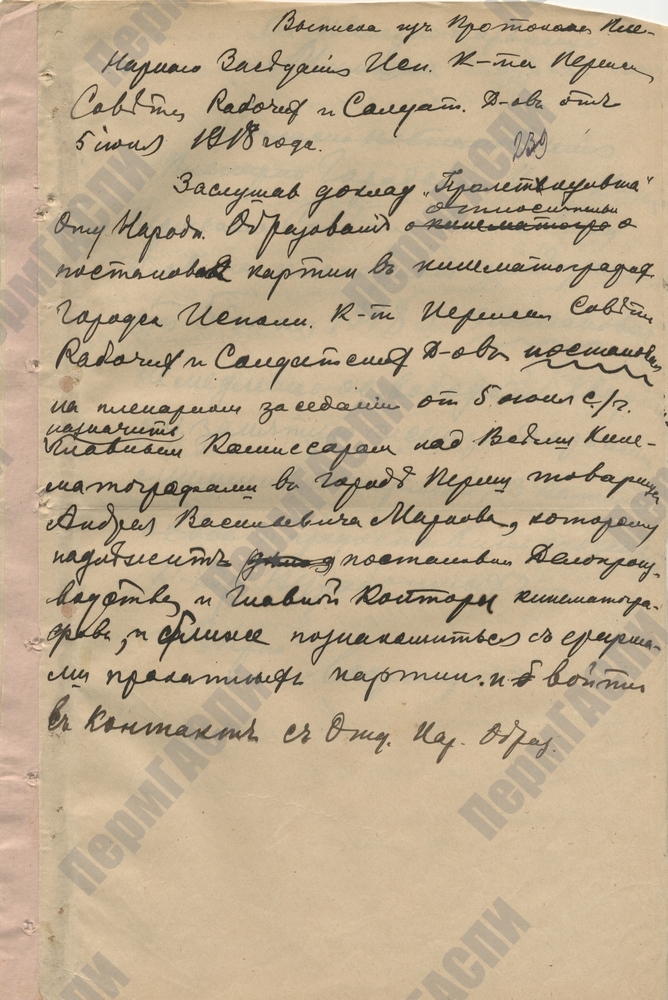 Выписка изъ Протокола Пле-
нарного Засѣданія Исп. К-та Пермск
Совѣта Рабочих и Солдат. Д-овъ отъ
5 июля 1918 года.
239
Заслушав доклад „Пролеткульта"
относительно
Отд Народн. Образованія о кинематогр о
постановке картин въ кинематографах
Городск Исполн. К-т Пермск Совѣта
Рабочих и Солдатских Д-овъ постановил
на пленарном заседании от 5 июля с/г.
назначить
Главным Комиссаром над Всѣми Кине-
матографами въ городѣ Перми товарища
Андрея Васильевича Маркова, которому
надлежитъ постановки Делопроиз-
водства, и Главной Конторы кинематогра-
фовъ, и ближе познакомиться съ фирма-
ми прокатных картин. и войти
въ Контактъ съ Отд. Нар. Образ.
ПермГАСПИ